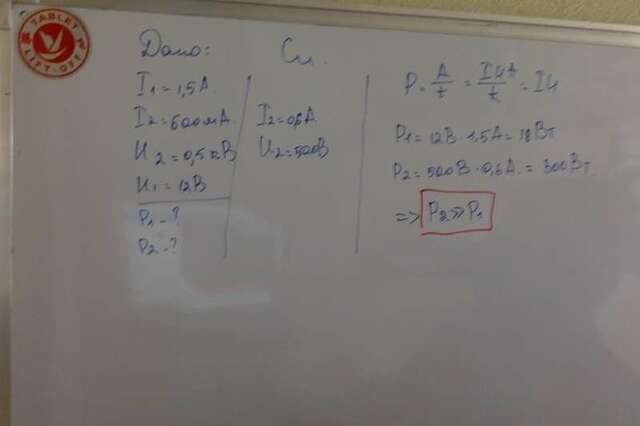 TABLET
LIFT-OFF
Дано:
I1 = 1,5 A.
I2 = 600мA.
U2 = 0,5 кВ
U1 = 12В
P1 - ?
P2 - ?
Си.
I2 = 0,6A
U2 = 500В
P = A/t = IUt/t = IU
P1 = 12В · 1,5A = 18Вт
P2 = 500В · 0,6A. = 300Вт
=> P2 >> P1